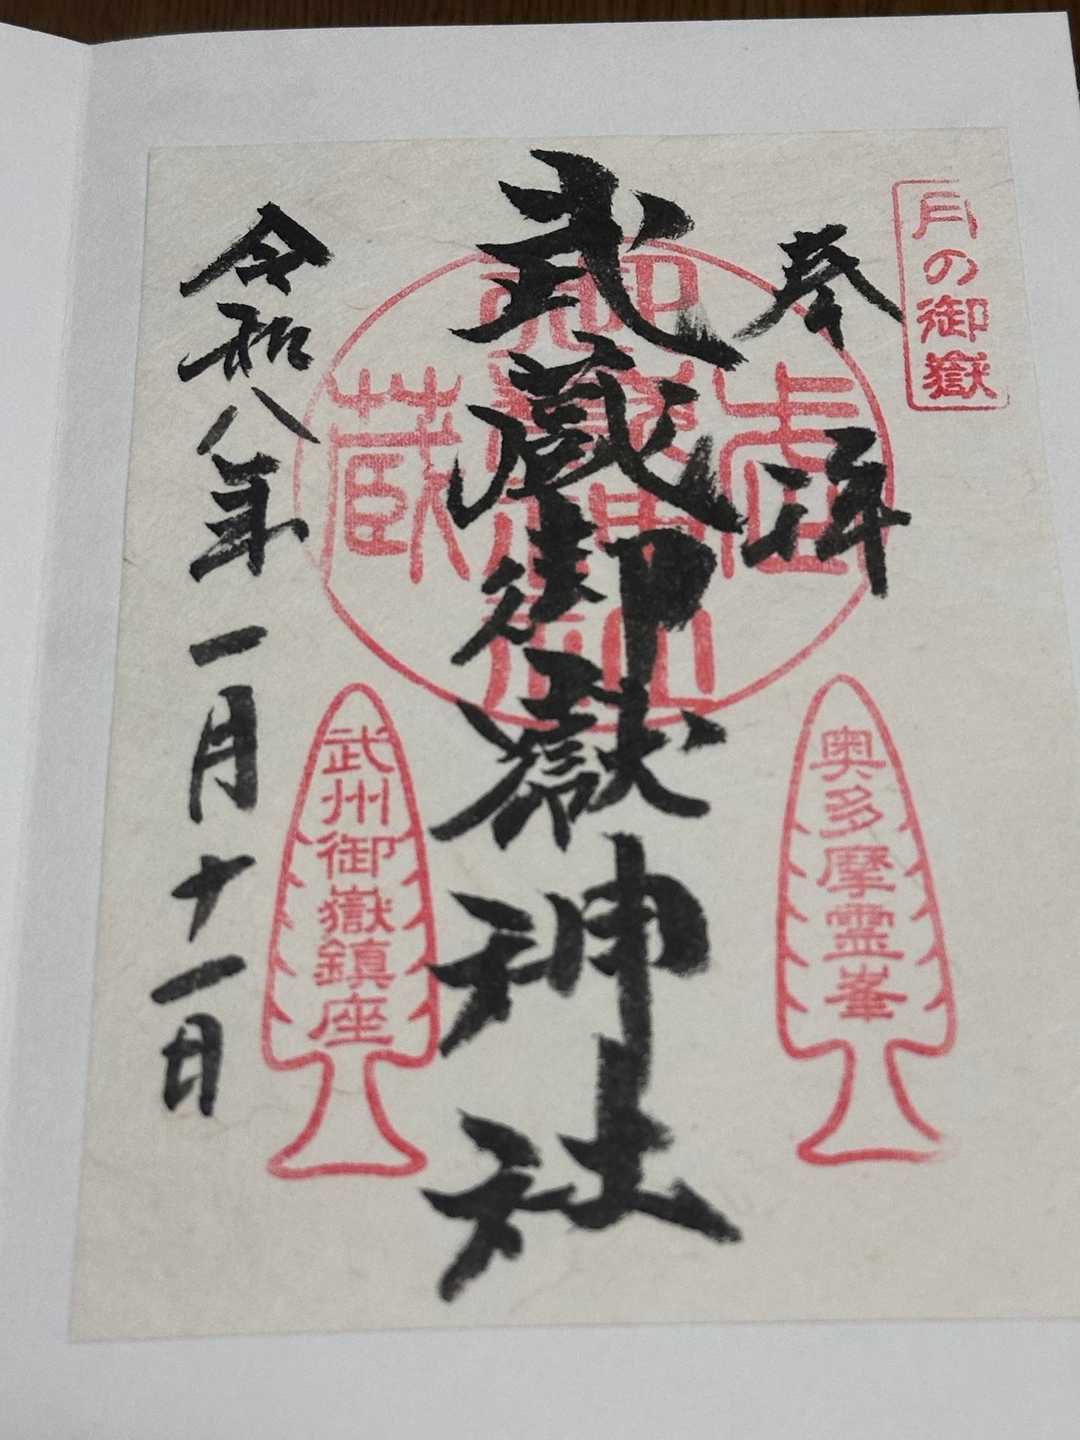 月の御嶽
奉拝
奥多摩霊峯
武蔵御嶽神社
武州御嶽鎮座
令和八年一月十一日